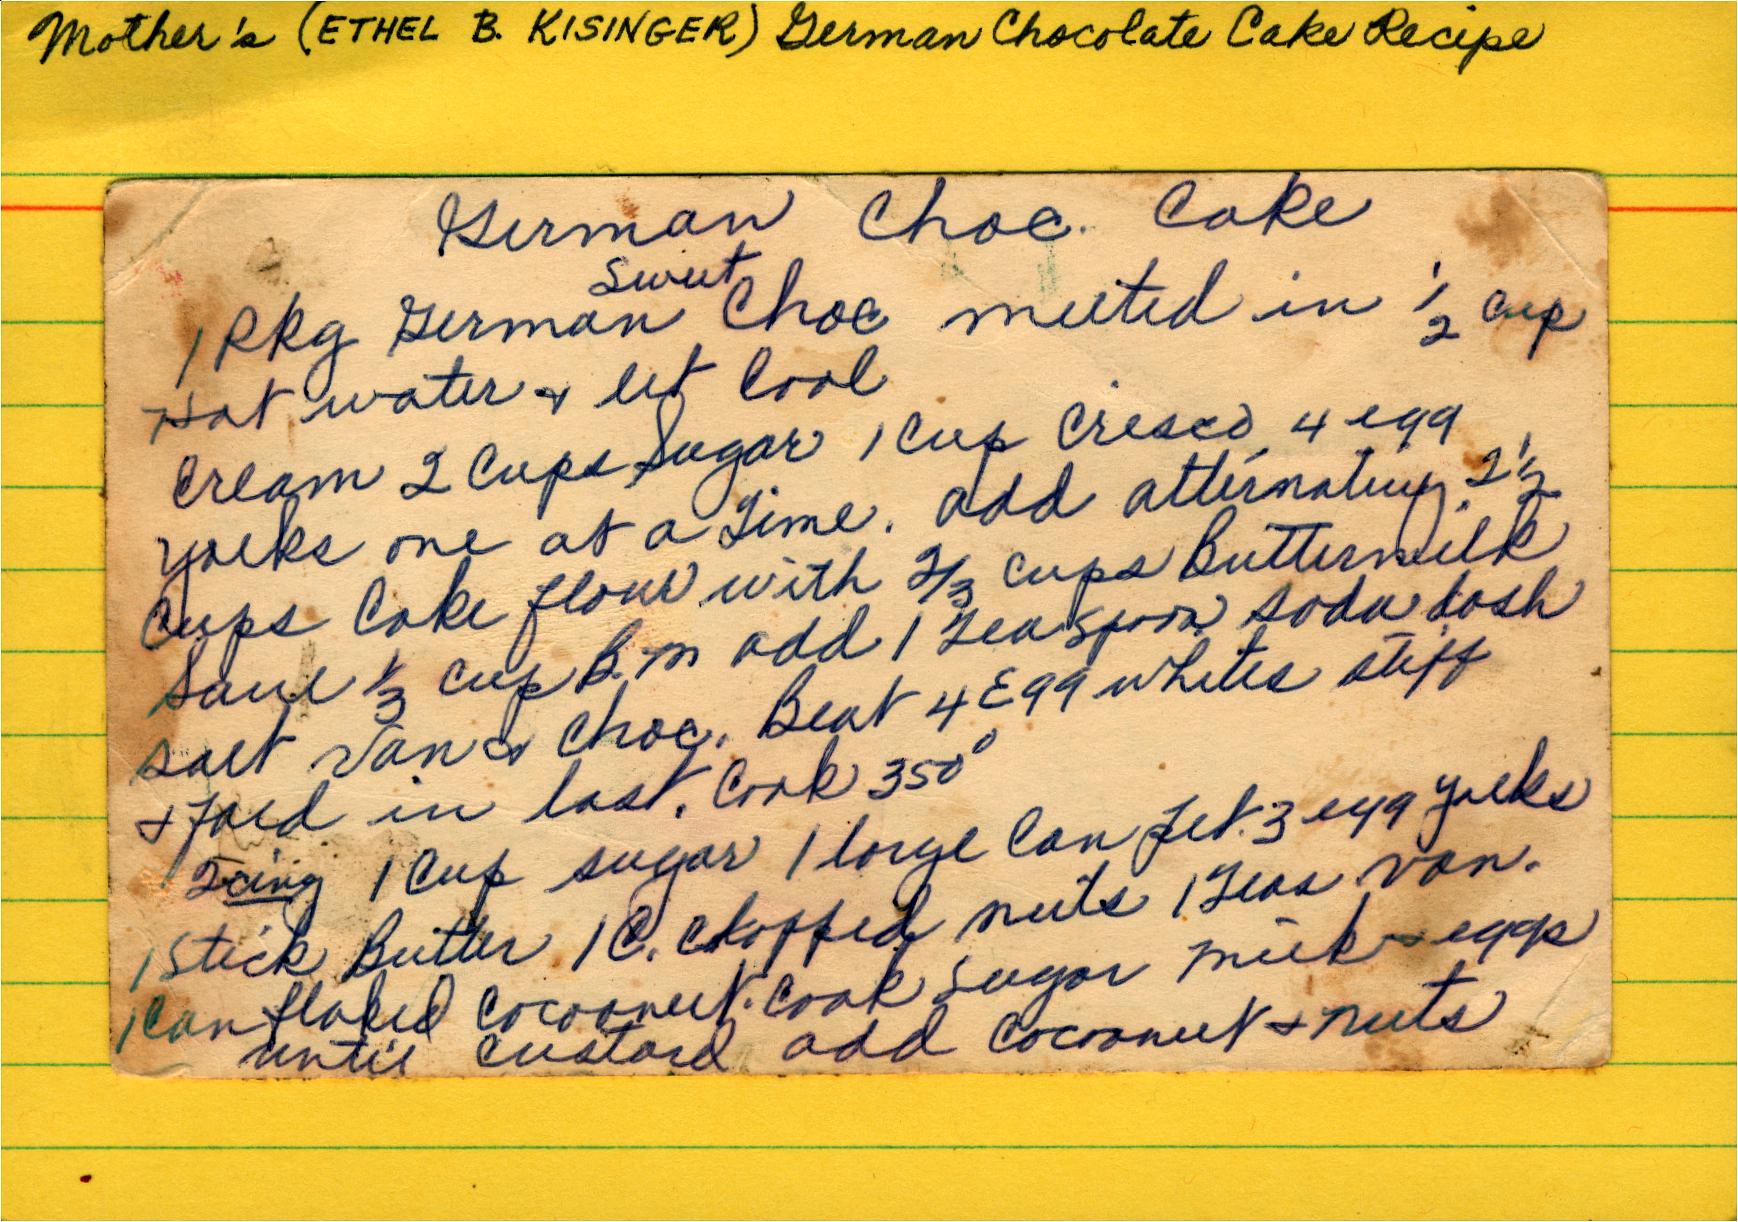 Mother's (ETHEL B. KISINGER) German Chocolate Cake Recipe
German Choc. Cake
Sweet
1 Pkg German Choc melted in 1/2 cup
Hot water & let Cool
Cream 2 Cups Sugar 1 Cup Crisco 4 egg
yolks one at a Time. add alternating 2 1/2
Cups Cake flour with 2/3 cups Buttermilk
Save 1/3 cup B.M add 1 Teaspoon soda dash
salt Van & Choc. Beat 4 Egg whites stiff
& Fold in last. Cook 350°
Icing 1 Cup sugar 1 large Can Pet. 3 egg yolks
1 Stick Butter 1 C. chopped nuts 1 Teas van.
1 Can flaked Cocoanut. Cook Sugar milk & eggs
until custard add Cocoanut & nuts